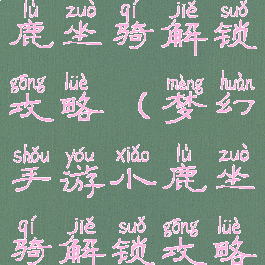 lù zuò qí jiě suǒ
鹿坐骑解锁
gōng lüè mèng huàn
攻略（梦幻
shǒu yóu xiǎo lù zuò
手游小鹿坐
qí jiě suǒ gōng lüè
骑解锁攻略